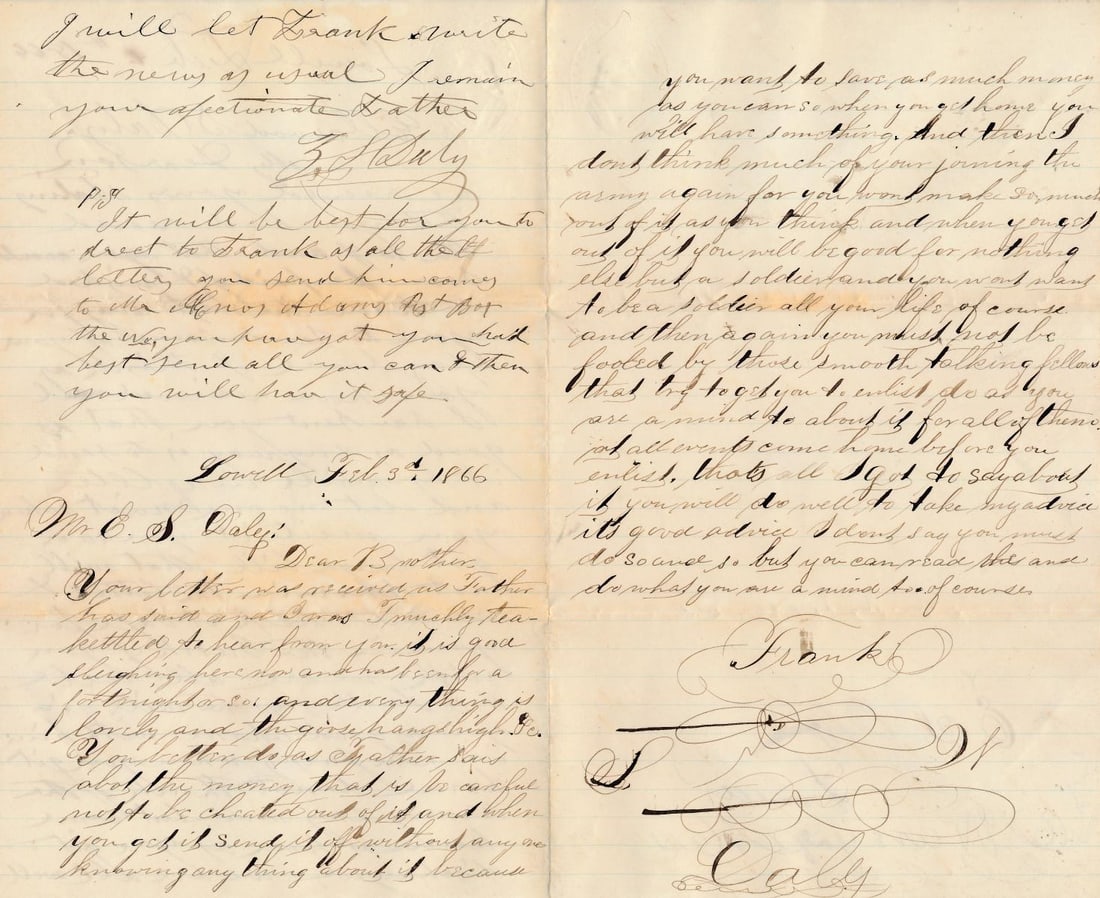 I will let Frank write
the news as usual I remain
your afectionate Father
Z S Daly
P.S
It will be best for you to
drect to Frank as all the
letters you send him comes
to Mr Enos Adams Post Box
the way you have got you had
best send all you can & then
you will have it safe
Lowell Feb. 3d, 1866
Mr E. S. Daley:
Dear Brother,
Your letter was received as Father
has said and I was muchly tea-
kettled to hear from you. it is good
sleighing here now and has been for a
fortnight or so: and every thing is
lovely and the goose hangs high &c.
You better do as Father sais
abot the money that is be careful
not to be cheated out of it and when
you get it send it of without any one
knowing any thing about it because
you want to save as much money
as you can so when you get home you
will have something. And then I
dont think much of your joining the
army again for you wont make so much
out of it as you think and when you get
out of it you will be good for nothing
else but a soldier and you wont want
to be a soldier all your life of course
and then again you must not be
fooled by those smooth talking fellows
that try to get you to enlist do as you
are a mind to about it for all of them.
at all events come home before you
enlist. thats all I got to say about
it you will do well to take my advice
it's good advice I dont say you must
do so and so but you can read this and
do what you are a mind to of course
Frank
S. W
Daley